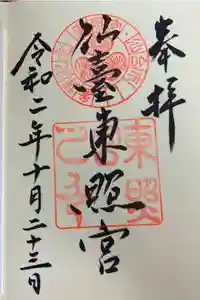 奉拝
仙臺東照宮
令和二年十月二十三日
東照